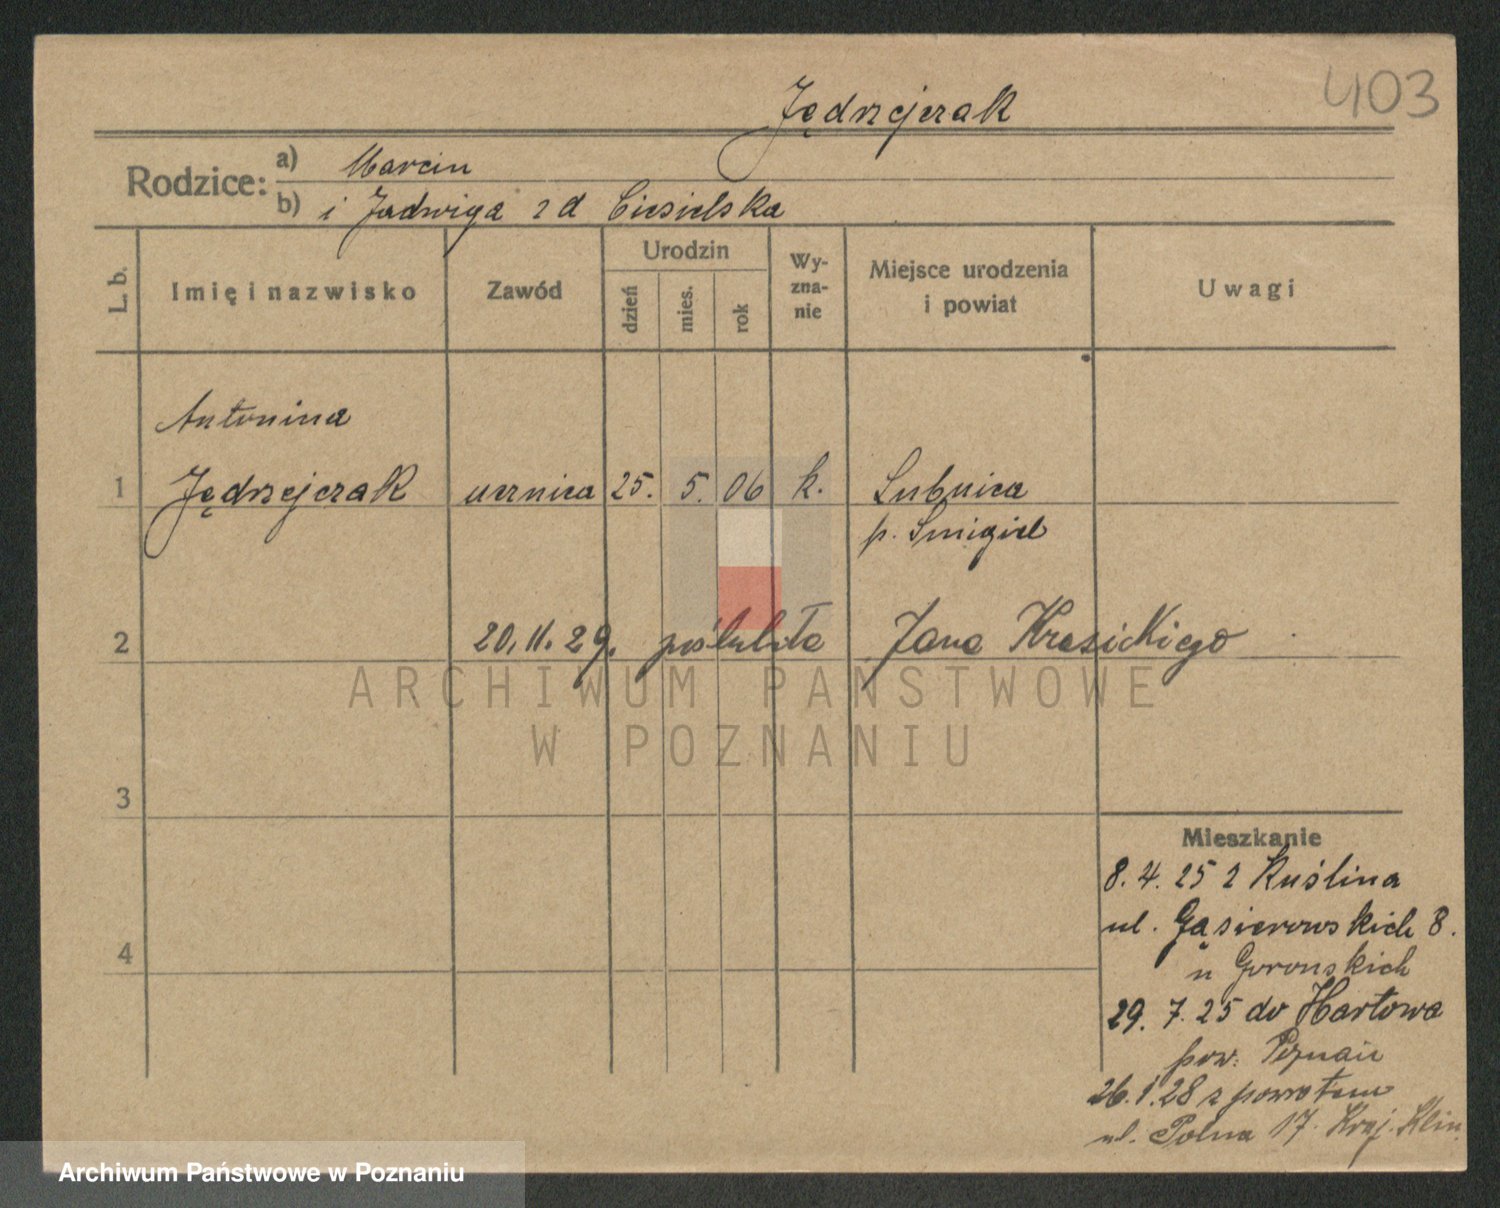 403
Jędrzejczak
Rodzice: a) Marcin
b) i Jadwiga z d Ciesielska
L. b. Imię i nazwisko Zawód Urodzin dzień mies. rok Wy-zna-nie Miejsce urodzenia i powiat Uwagi
Antonina
1 Jędrzejczak ucznica 25. 5. 06 k. Łubnica
p. Śmigiel
2 20. 11. 29. poślubiła Jana Krasickiego
ARCHIWUM PAŃSTWOWE
W POZNANIU
3
Mieszkanie
8. 4. 25 z Kuślina
ul. Gąsiorowskich 8.
4
u Goronskich
29. 7. 25 do Hartowa
pow. Poznań
26. 1. 28 z powrotem
ul. Polna 17. Kraj. Klin.
Archiwum Państwowe w Poznaniu